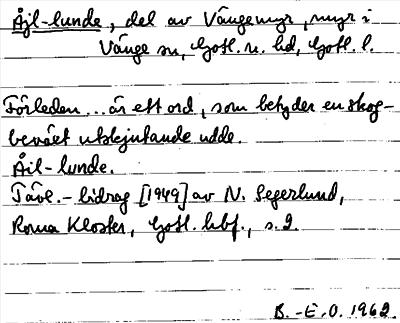 Åjl-lunde, del av Vängemyr, myr i
Vänge sn, Gotl. n. hd, Gotl. l.
Förleden... är ett ord, som betyder en skog-
beväxt utskjutande udde.
Åil-lunde.
Tävl.-bidrag [1949] av N. Segerlund,
Roma Kloster, Gotl. hbf., s. 2.
B.-E.O. 1962.